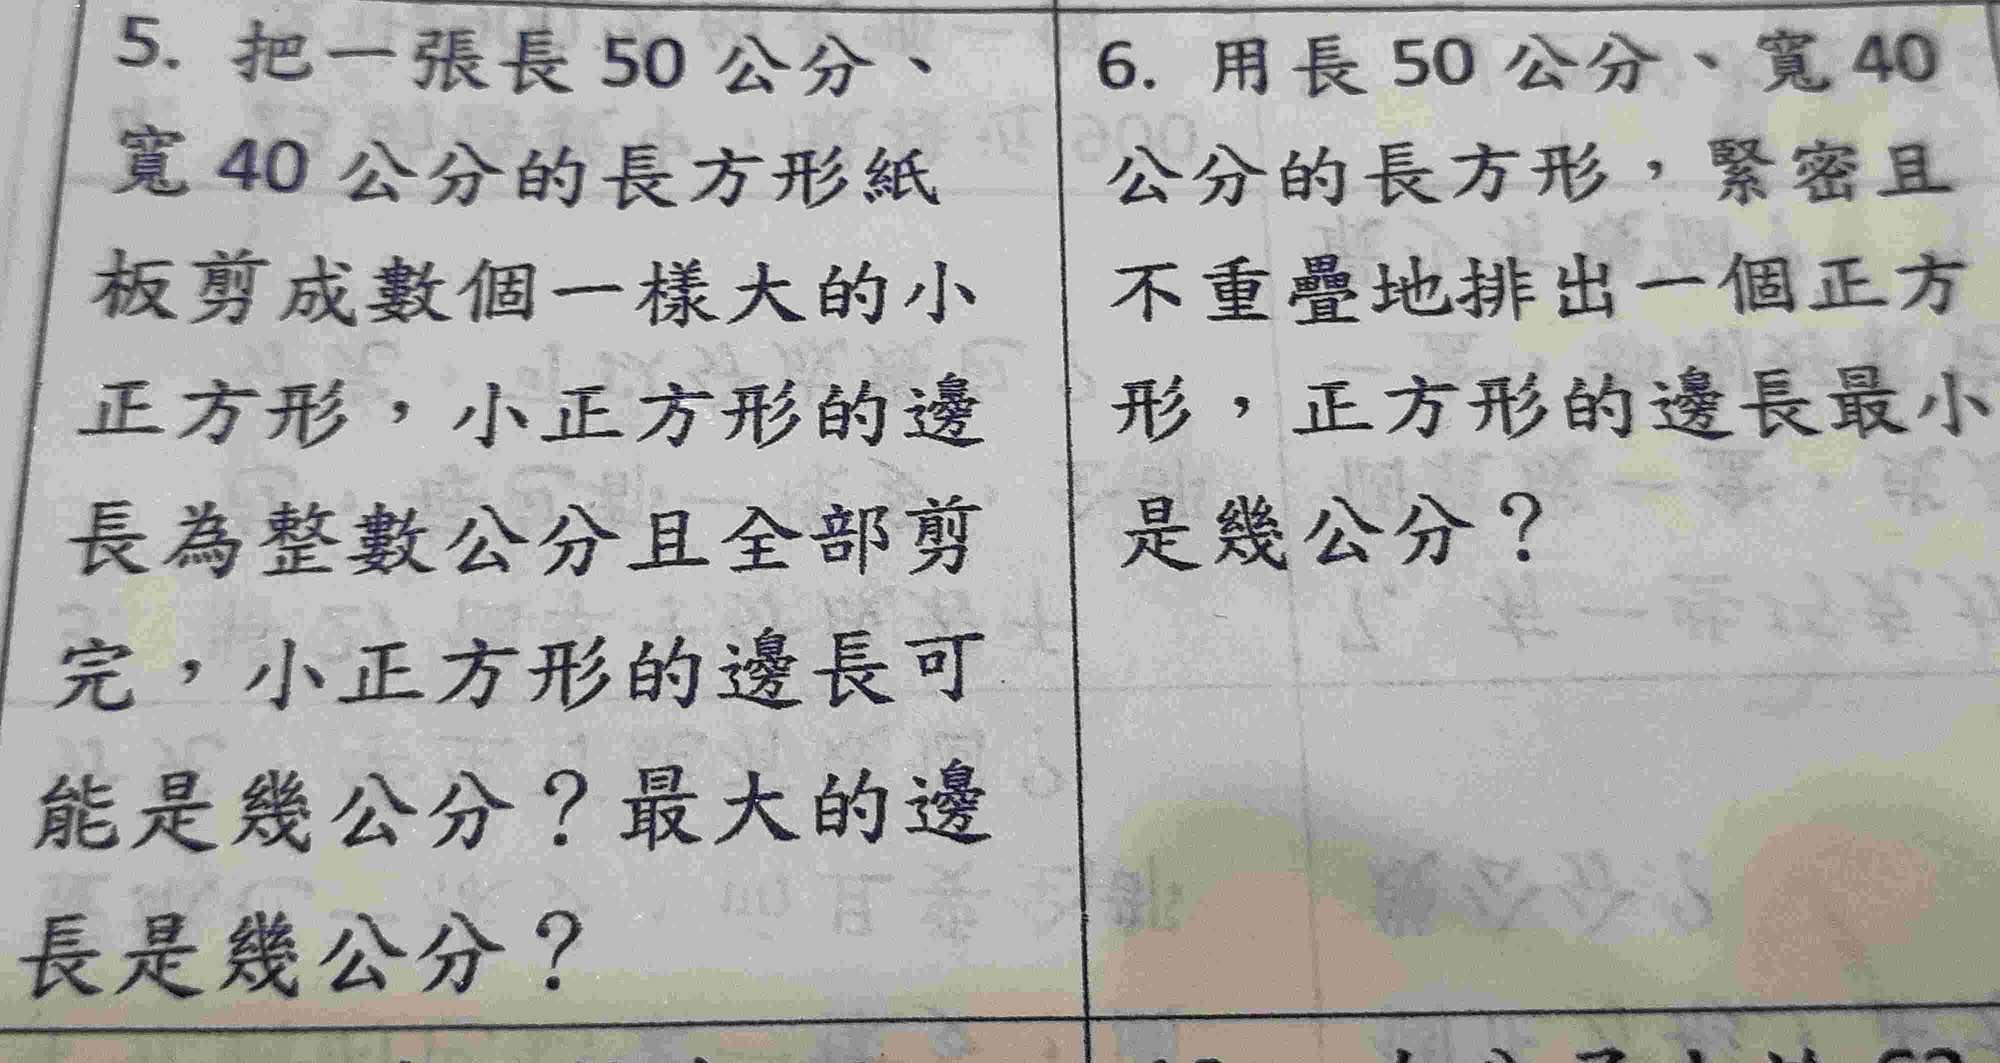 5. 把一張長 50 公分、
寬 40 公分的長方形紙
板剪成數個一樣大的小
正方形，小正方形的邊
長為整數公分且全部剪
完，小正方形的邊長可
能是幾公分？最大的邊
長是幾公分？
6. 用長 50 公分、寬 40
公分的長方形，緊密且
不重疊地排出一個正方
形，正方形的邊長最小
是幾公分？